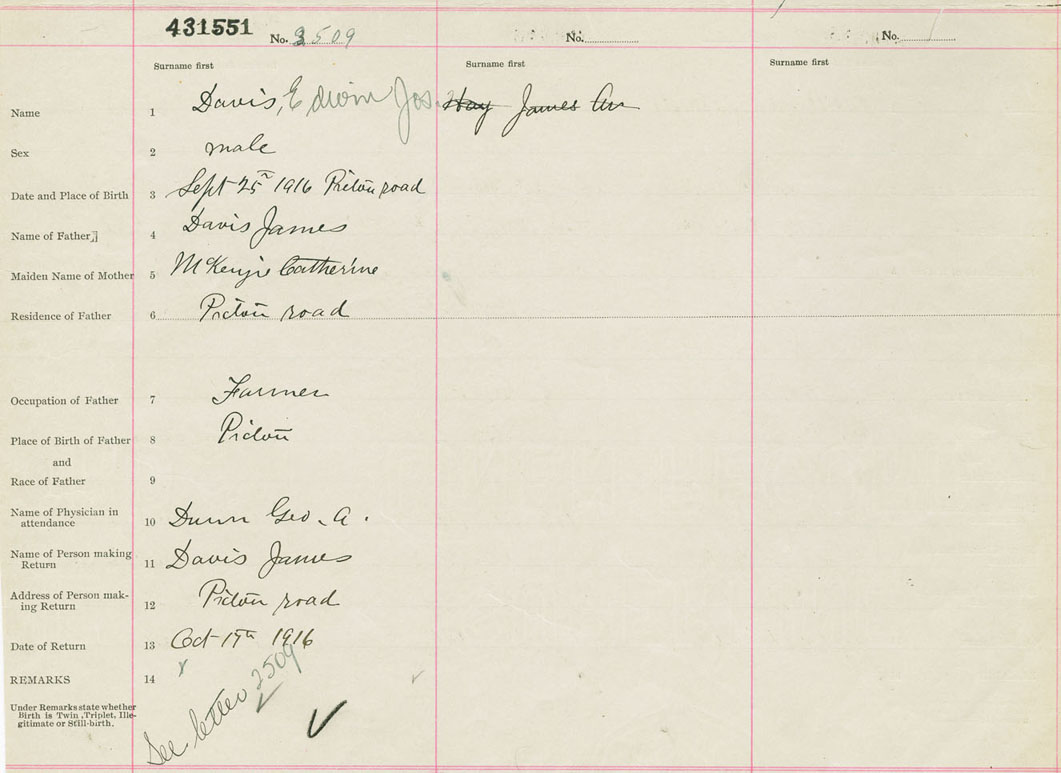 431551 No. 3509
No.
No.
Surname first
Surname first
Surname first
Name 1 Davis, Edwin Jos. Hay James
Sex 2 male
Date and Place of Birth 3 Sept 25th 1916 Picton road
Name of Father 4 Davis James
Maiden Name of Mother 5 McKenzie Catherine
Residence of Father 6 Picton road
Occupation of Father 7 Farmer
Place of Birth of Father 8 Picton
and
Race of Father 9
Name of Physician in
attendance 10 Dunn Geo. A.
Name of Person making
Return 11 Davis James
Address of Person mak-
ing Return 12 Picton road
Date of Return 13 Oct 17th 1916
REMARKS 14
Under Remarks state whether
Birth is Twin, Triplet, Ille-
gitimate or Still-birth.
See letter 2509